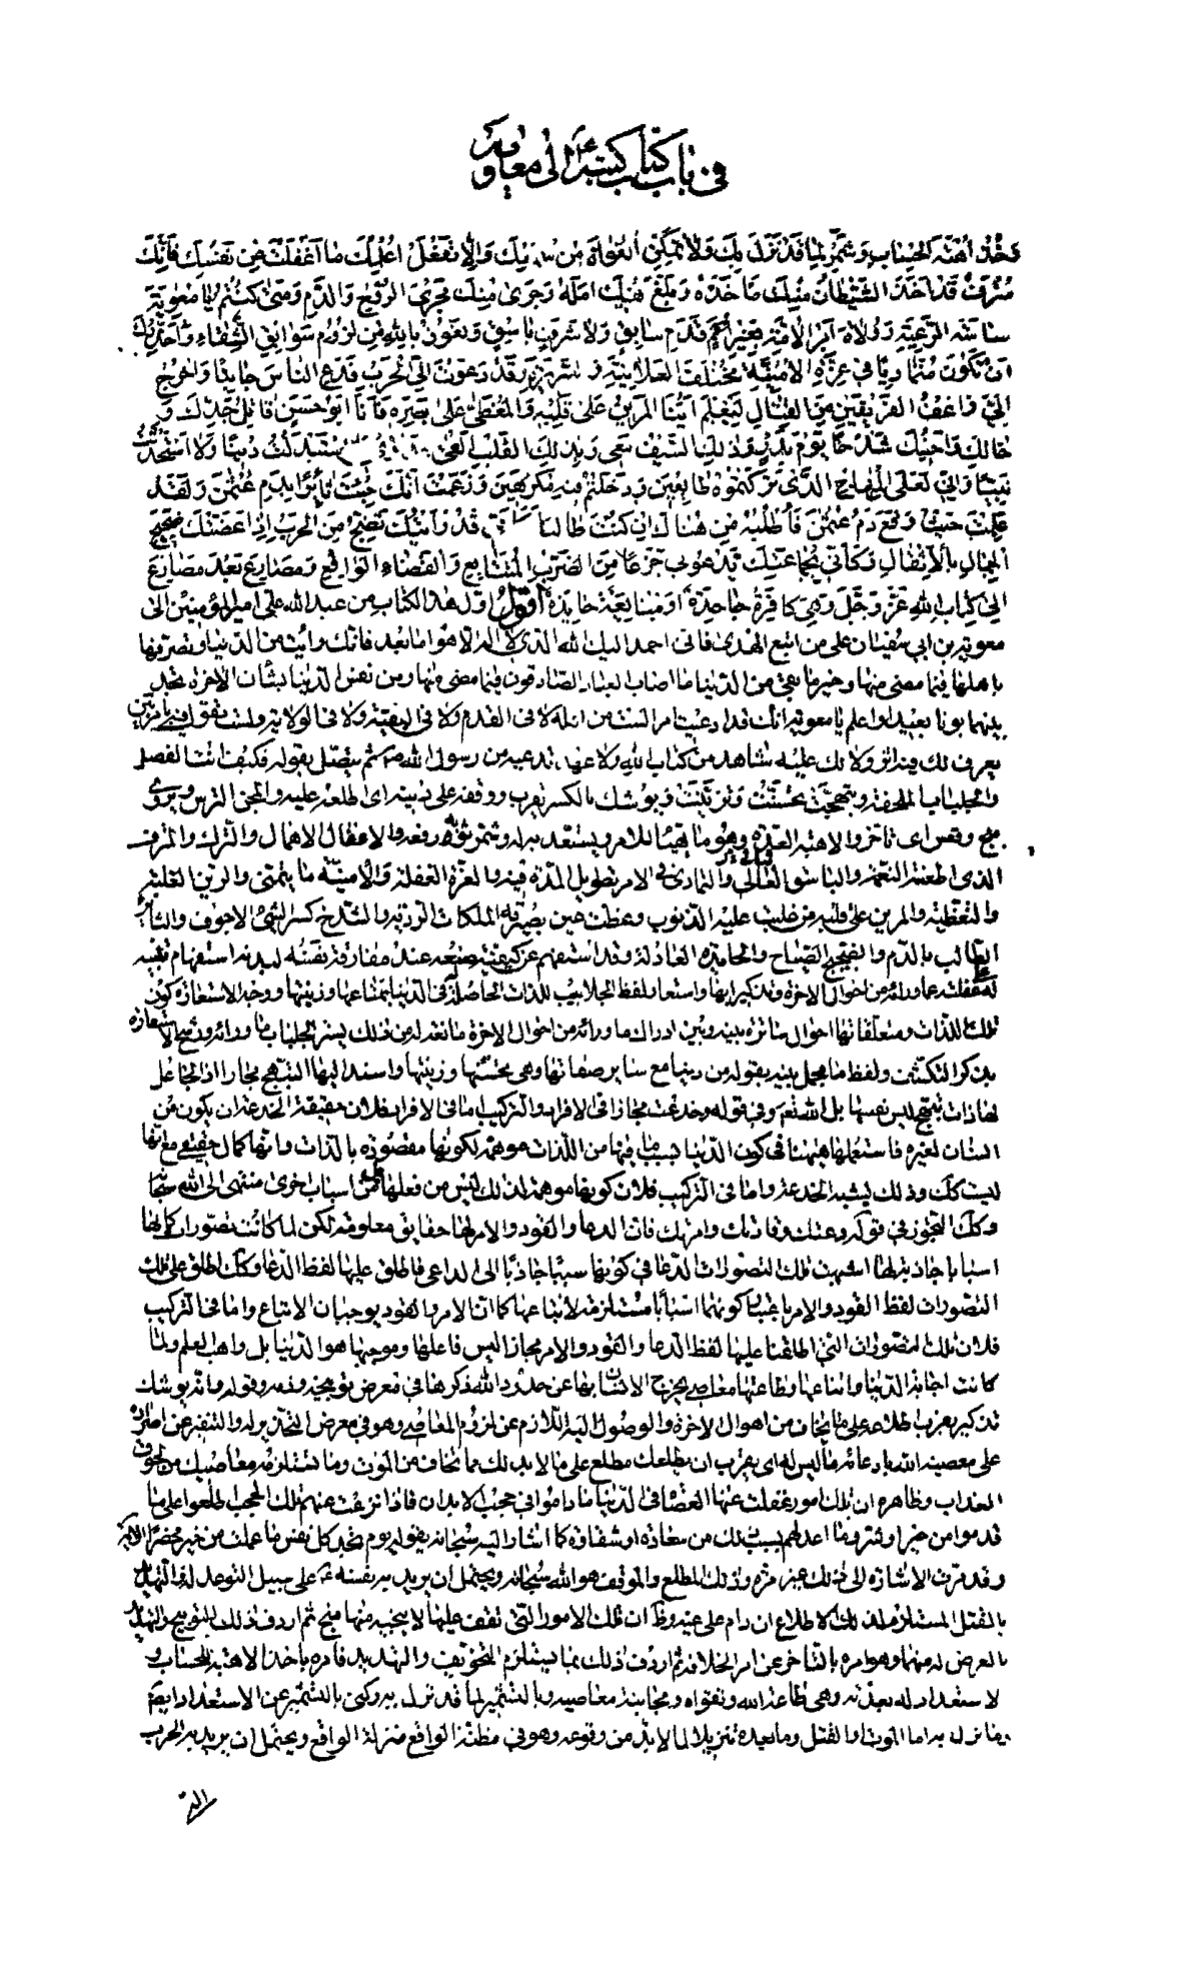 في باب كتاب كتبه ع الى معاوية
وَخُذْ اُهْبَةَ الْحِسٰابِ وَشَمِّرْ لِمٰا قَدْ نَزَلَ بِكَ وَلٰا تُمَكِّنِ الْغُوٰاةَ مِنْ سَمْعِكَ وَاِلّٰا تَفْعَلْ اُعْلِمْكَ مٰا اَغْفَلْتَ مِنْ نَفْسِكَ فَاِنَّكَ
مُتْرَفٌ قَدْ اَخَذَ الشَّيْطٰانُ مِنْكَ مَاْخَذَهُ وَبَلَغَ فيكَ اَمَلَهُ وَجَرىٰ مِنْكَ مَجْرَى الرُّوحِ وَالدَّمِ وَمَتىٰ كُنْتُمْ يٰا مُعٰوِيَةُ
سٰاسَةَ الرَّعِيَّةِ وَوُلٰاةَ اَمْرِ الْاُمَّةِ بِغَيْرِ قَدَمٍ سٰابِقٍ وَلٰا شَرَفٍ بٰاسِقٍ وَنَعُوذُ بِاللّٰهِ مِنْ لُزُومِ سَوٰابِقِ الشَّقٰاءِ وَاُحَذِّرُكَ
اَنْ تَكُونَ مُتَمٰادِيًا في غِرَّةِ الْاُمْنِيَّةِ مُخْتَلِفَ الْعَلٰانِيَةِ وَالسَّريرَةِ وَقَدْ دَعَوْتَ اِلَى الْحَرْبِ فَدَعِ النّٰاسَ جٰانِبًا وَاخْرُجْ
اِلَيَّ وَاَعْفِ الْفَريقَيْنِ مِنَ الْقِتٰالِ لِيُعْلَمَ اَيُّنَا الْمَرينُ عَلىٰ قَلْبِهِ وَالْمُغَطّىٰ عَلىٰ بَصَرِهِ فَاَنَا اَبُو حَسَنٍ قٰاتِلُ جَدِّكَ وَ
خٰالِكَ وَاَخيكَ شَدْخًا يَوْمَ بَدْرٍ وَذٰلِكَ السَّيْفُ مَعي وَبِذٰلِكَ الْقَلْبِ اَلْقىٰ مَا اسْتَبْدَلْتُ دينًا وَلَا اسْتَحْدَثْتُ
نَبِيًّا وَاِنّي لَعَلَى الْمِنْهٰاجِ الَّذي تَرَكْتُمُوهُ طٰائِعينَ وَدَخَلْتُمْ فيهِ مُكْرَهينَ وَزَعَمْتَ اَنَّكَ جِئْتَ ثٰائِرًا بِدَمِ عُثْمٰنَ وَلَقَدْ
عَلِمْتَ حَيْثُ وَقَعَ دَمُ عُثْمٰنَ فَاطْلُبْهُ مِنْ هُنٰاكَ اِنْ كُنْتَ طٰالِبًا قَدْ رَاَيْتُكَ تَضِجُّ مِنَ الْحَرْبِ اِذٰا عَضَّتْكَ ضَجيجَ
الْجِمٰالِ بِالْاَثْقٰالِ وَكَاَنّي بِجَمٰاعَتِكَ تَدْعُوني جَزَعًا مِنَ الضَّرْبِ الْمُتَتٰابِعِ وَالْقَضٰاءِ الْوٰاقِعِ وَمَصٰارِعَ بَعْدَ مَصٰارِعَ
اِلىٰ كِتٰابِ اللّٰهِ عَزَّ وَجَلَّ وَهِيَ كٰافِرَةٌ جٰاحِدَةٌ اَوْ مُبٰايِعَةٌ حٰائِدَةٌ اقول اول هذا الكتاب من عبد الله علي امير المؤمنين الى
معوية بن ابي سفيان على من اتبع الهدى فاني احمد اليك الله الذي لا اله الا هو اما بعد فانك رايت من الدنيا وتصرفها
باهلها فيما مضى منها وخير ما بقي من الدنيا ما اصاب العباد الصادقون فيما مضى منها ومن نفس الدنيا بشان الاخرة يجد
بينهما بونا بعيدا واعلم يا معوية انك قد ادعيت امرا لست من اهله لا في القدم ولا في البقية ولا في الولاية ولست تقول فيه بامر بين
يعرف لك فيه اثر ولا لك عليه شاهد من كتاب الله ولا عهد تدعيه من رسول الله ص ثم يتصل بقوله فكيف انت الفصل
والجلباب الملحفة وتبهجت تحسنت وتزينت ويوشك بالكسر يقرب ووقفه على ذنبه اى اطلعه عليه والمجن الترس ويروى
منج وقعس اى تاخر والاهبة العدة وهو ما يتهيا للامر ويستعد به له وشمر ثوبه رفعه والاغفال الاهمال والترك والمترف
الذي اطغته النعمة والباسق العالي والتمادى في الامر تطويل المدة فيه والغرة الغفلة والامنية ما يتمنى والرين الغلبة
والتغطية والمرين على قلبه من غلبت عليه الذنوب وغطت عين بصيرته الملكات الردية والشدخ كسر الشئ الاجوف والثائر
الطالب بالدم والضجيج الصياح والحائدة العادلة وقد استفهم عن كيفية صنعه عند مفارقة نفسه لبدنه استفهام تنبيه
له على غفلته عما ورائه من احوال الاخرة وتذكير بها واستعار لفظ الجلابيب للذات الحاصلة في الدنيا بمتاعها وزينتها ووجه الاستعارة كون
تلك اللذات ومتعلقاتها احوال ساترة بينه وبين ادراك ما ورائه من احوال الاخرة مانعة له من ذلك يستر الجلباب ما ورائه ورشح الاستعارة
بذكر التكشف ولفظ ما مجمل بينه بقوله من دنيا مع ساير صفاتها وهي تحسنها وزينتها واسند اليها التبهج مجازا اذ الجاعل
لها ذات تبهج ليس نفسها بل الله تعم وفي قوله وخدعت مجاز في الافراد والتركيب اما في الافراد فلان حقيقة الخدعة ان يكون من
انسان لغيره فاستعملها هيهنا في كون الدنيا بسبب ما فيها من اللذات موهمة لكونها مقصودة بالذات وانها كمال حقيقي مع انها
ليست كك وذلك يشبه الخدعة واما في التركيب فلان كونها موهمة لذلك ليس من فعلها بل من اسباب اخرى منتهى الى الله سبحانه
وكك التجوز في قوله دعتك وقادتك وامرتك فان الدعاء والقود والامر لها حقايق معلومة لكن لما كانت تصورات كمالها
اسبابا جاذبة لها اشبهت تلك التصورات الدعاء في كونها سببا جاذبا الى الداعي فاطلق عليها لفظ الدعاء وكك اطلق على تلك
التصورات لفظ القود والامر باعتبار كونهما اسبابا مستلزمة لاتباعها كما ان الامر والقود يوجبان الاتباع واما في التركيب
فلان تلك التصورات التي اطلقنا عليها لفظ الدعاء والقود والامر مجازا ليس فاعلها وموجبها هو الدنيا بل واهب العلم ولما
كانت اجابة الدنيا واتباعها وطاعتها معاصي يخرج الانسان بها عن حدود الله ذكرها في معرض توبيخه وذمه وقوله وانه يوشك
تذكير بقرب اطلاعه على ما يخاف من اهوال الاخرة والوصول اليه اللازم عن لزوم المعاصي وهو في معرض التحذير له والتنفير عن اصراره
على معصية الله بادعائه ما ليس له اى يقرب ان يطلعك مطلع على ما لا بد لك مما تخاف من الموت وما تستلزمه معاصيك من لحوق
العذاب وظاهره ان تلك امور غفلت عنها العصاة في الدنيا ما داموا في حجب الابدان فاذا نزعت عنهم تلك الحجب اطلعوا على ما
قدموا من خير او شر وما اعد لهم بسبب ذلك من سعادة او شقاوة كما اشار اليه سبحانه بقوله يوم تجد كل نفس ما عملت من خير محضرا الاية
وقد مرت الاشارة الى ذلك غير مرة وذلك المطلع والموقف هو الله سبحانه ويحتمل ان يريد به نفسه ع على سبيل التوعد له والتهديد
بالقتل المستلزم لذلك الاطلاع ان دام على غيه وظ ان تلك الامور التي تقف عليها لا ينجيه منها منج ثم اردف ذلك التوبيخ والتهديد
بالغرض له منهما وهو امره بالتاخر عن امر الخلافة ثم اردف ذلك بما يستلزم التخويف والتهديد فامره باخذ الاهبة للحساب و
الاستعداد له بعدته وهي طاعة الله وتقواه ومجانبة معاصيه وبالتشمير لما قد نزل به وكنى بالتشمير عن الاستعداد ايضم
وما نزل به اما الموت او القتل وما بعده تنزيلا لما لا بد من وقوعه وهو في مظنة الواقع منزلة الواقع ويحتمل ان يريد به الحرب